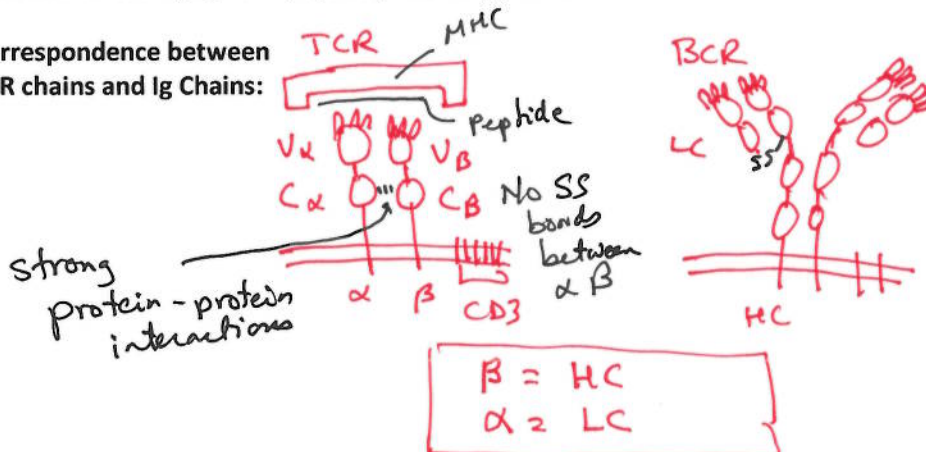 rrespondence between
R chains and Ig Chains:
TCR
MHC
Peptide
Vα
Vβ
Cα
Cβ
No SS
bonds
between
α β
strong
protein-protein
interactions
α
β
CD3
BCR
LC
SS
HC
β = HC
α = LC